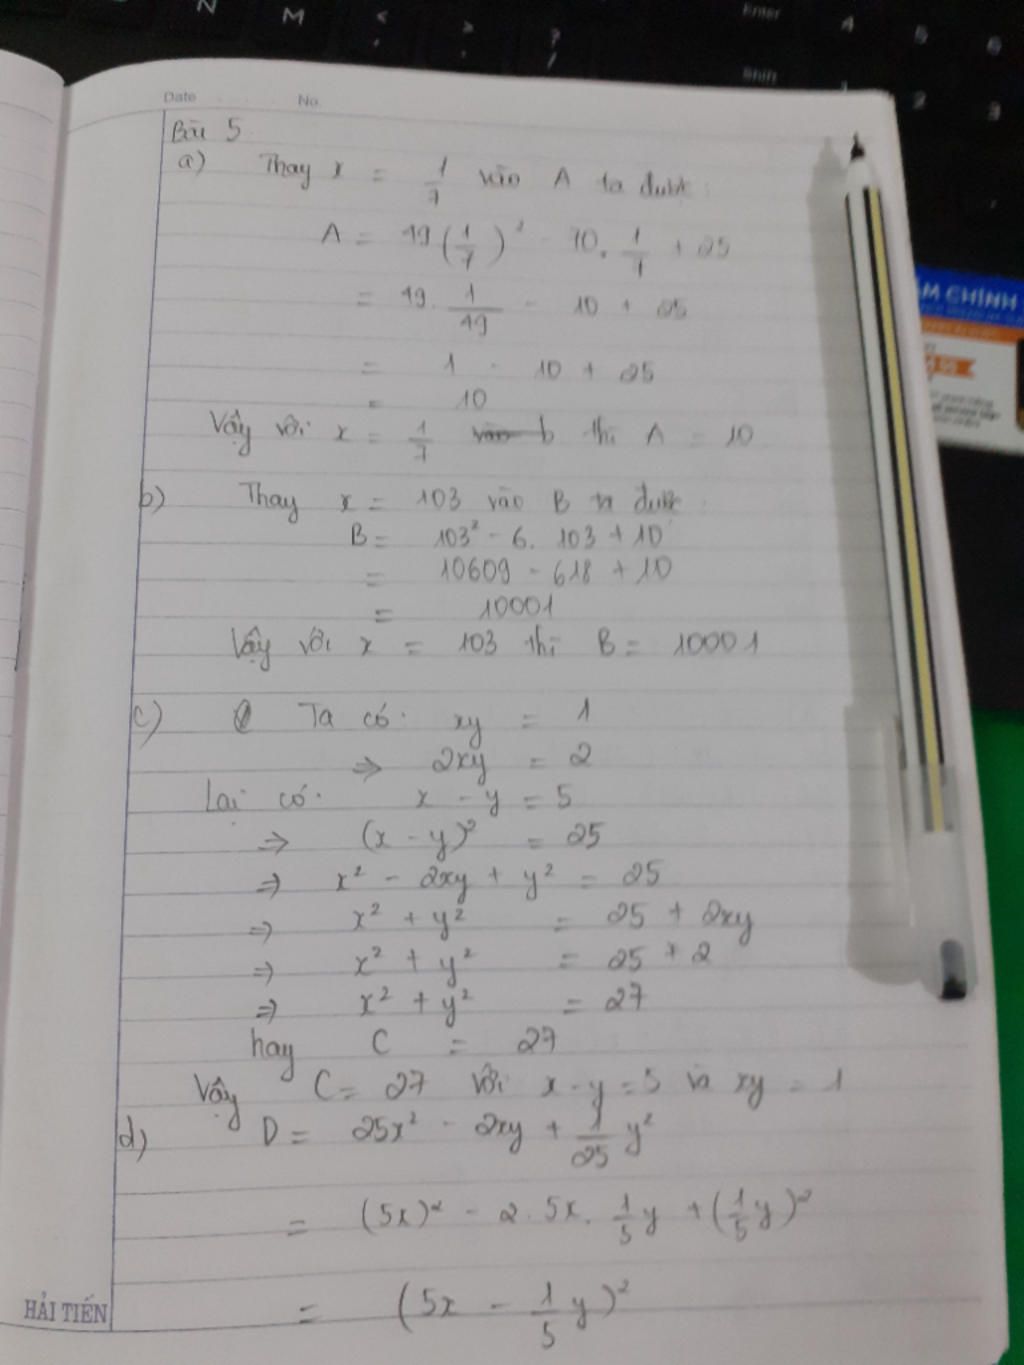 N M < , > . ? / Enter 4 5 6
Shift 1 2 3
Date No.
Bài 5
a) Thay x = 1/7 vào A ta được:
A = 49(1/7)² - 70. 1/7 + 25
= 49. 1/49 - 10 + 25
= 1 - 10 + 25
= 10
Vậy với x = 1/7 thì A = 10
b) Thay x = 103 vào B ta được:
B = 103² - 6. 103 + 10
= 10609 - 618 + 10
= 10001
Vậy với x = 103 thì B = 10001
c) Ta có: xy = 1
⇒ 2xy = 2
Lại có: x - y = 5
⇒ (x - y)² = 25
⇒ x² - 2xy + y² = 25
⇒ x² + y² = 25 + 2xy
⇒ x² + y² = 25 + 2
⇒ x² + y² = 27
hay C = 27
Vậy C = 27 với x - y = 5 và xy = 1
d) D = 25x² - 2xy + 1/25 y²
= (5x)² - 2. 5x. 1/5 y + (1/5 y)²
= (5x - 1/5 y)²
HẢI TIẾN
CHÍNH